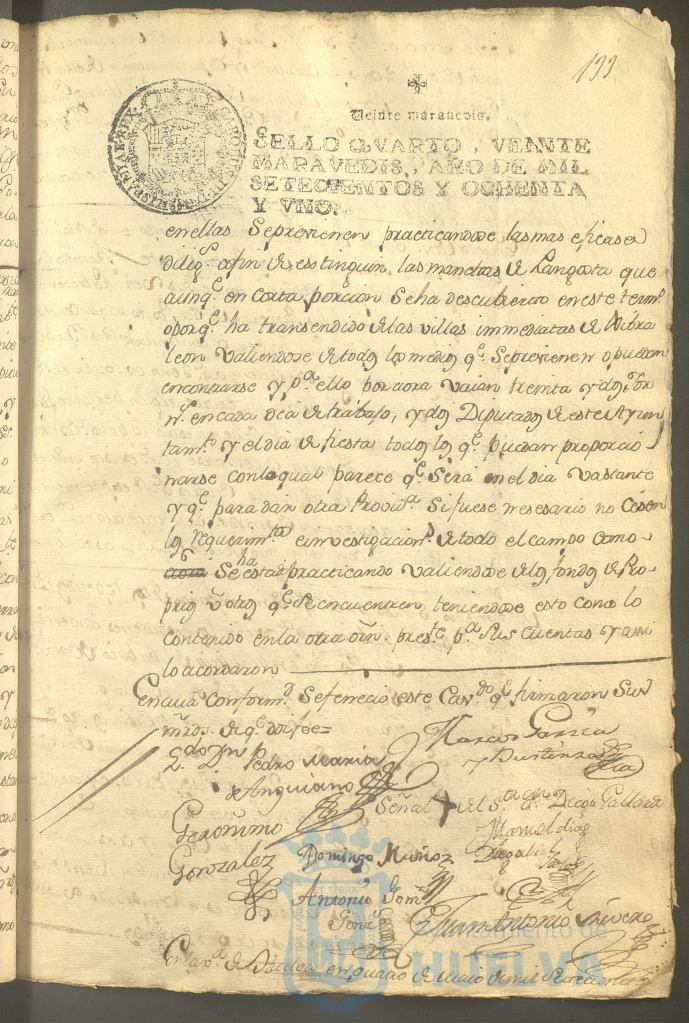 199
Veinte maravedis.
SELLO QVARTO, VEINTE
MARAVEDIS, AÑO DE MIL
SETECIENTOS Y OCHENTA
Y VNO.
en ellas se previenen practicandose las mas eficases
dilig.s a fin de esstinguir las manchas de Langosta que
aunq.e en corta porcion se ha descubierto en este term.o
o porq.e ha transendido de las villas immediatas de Gibra
leon valiendose de todos los medios q.e se previenen o puedan
encontrarse y p.a ello por aora vaian treinta y dos Jor
n.s en cada dia de trabajo, y dos Diputados de este Ayun
tam.to y el dia de fiesta todos los q.e puedan proporcio
narse con lo qual parece q.e será en el dia vastante
y q.e para dar otra Provid.a si fuese nesesario no cesen
los requerim.tos e investigacion.s de todo el campo como
se está practicando valiendose de los fondos de Pro
prios u otros q.e se encuentren teniendose esto como lo
contenido en la otra orn. pres.te p.a sus cuentas y assi
lo acordaron
En cuia conform.d se feneció este Cav.do q.e firmaron sus
mrds. de q.e doi fee=
L.do Dn. Pedro Maria
de Anguiano
Marcos Garcia
y Bustinza
Señal + del s.r Diego Gallardo
Geronimo
Gonzalez
Domingo Muñoz
Manuel Diaz
Antonio Gom.z
Gonz.z
Juan Antonio Rivero
Ayuntamiento de
HUELVA
En la v.a de Huelva en quatro de Maio de mil setecientos